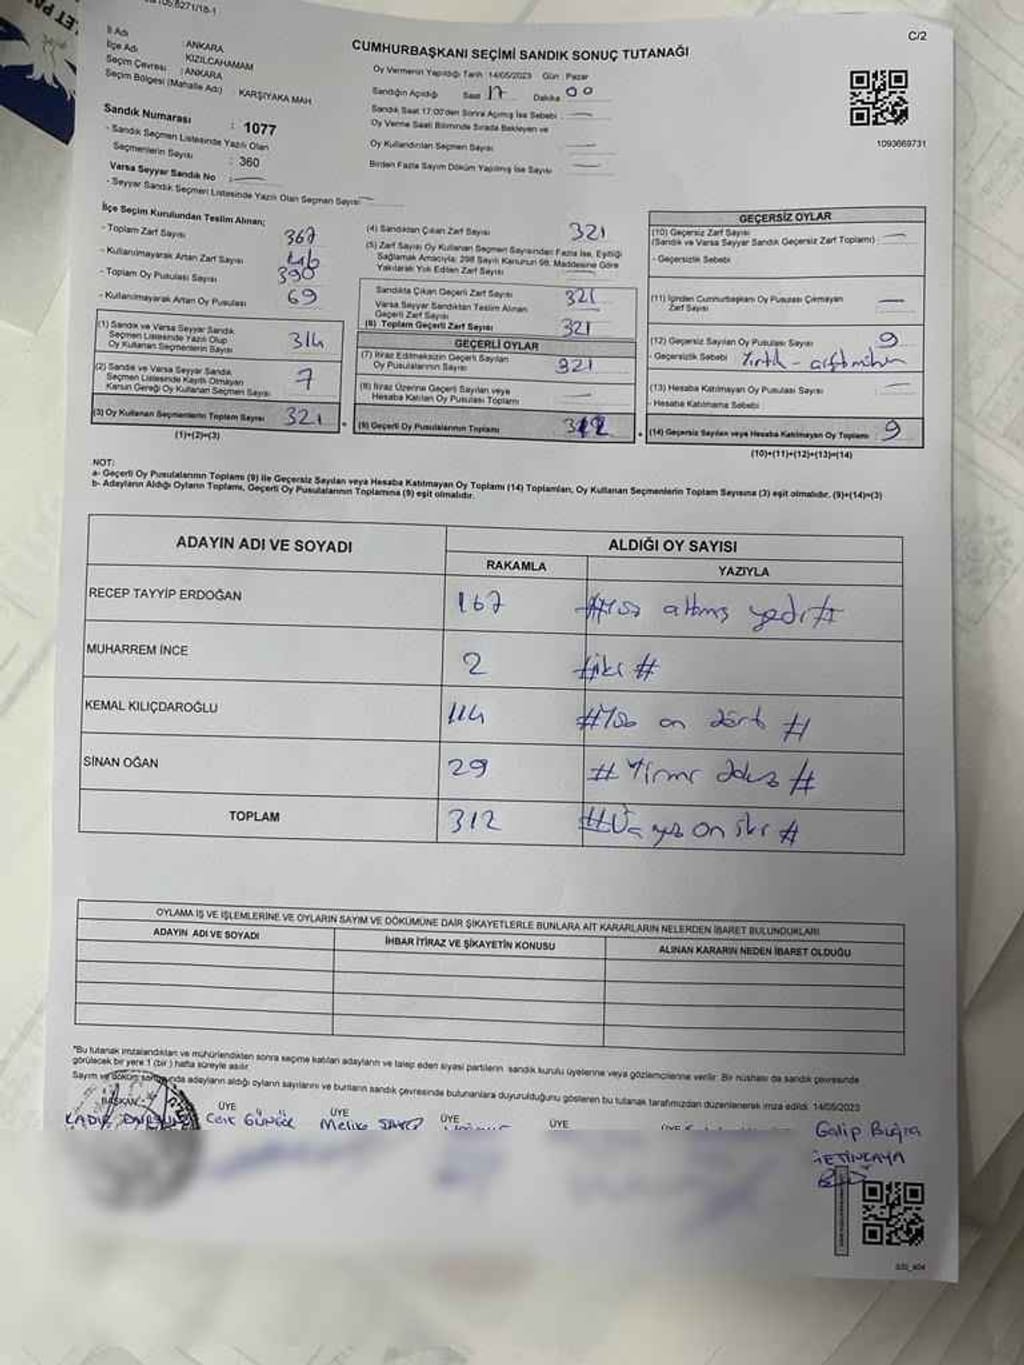 C/2
CUMHURBAŞKANI SEÇİMİ SANDIK SONUÇ TUTANAĞI
İl Adı : ANKARA
İlçe Adı : KIZILCAHAMAM
Seçim Çevresi : ANKARA
Seçim Bölgesi (Mahalle Adı) KARŞIYAKA MAH
Sandık Numarası : 1077
- Sandık Seçmen Listesinde Yazılı Olan
Seçmenlerin Sayısı : 360
Varsa Seyyar Sandık No :
- Seyyar Sandık Seçmen Listesinde Yazılı Olan Seçmen Sayısı
Oy Vermenin Yapıldığı Tarih : 14/05/2023 Gün : Pazar
Sandığın Açıldığı Saat 17 Dakika 00
Sandık Saat 17:00'den Sonra Açılmış İse Sebebi :
Oy Verme Saati Bitiminde Sırada Bekleyen ve
Oy Kullandırılan Seçmen Sayısı
Birden Fazla Sayım Döküm Yapılmış İse Sayısı
1093669731
İlçe Seçim Kurulundan Teslim Alınan;
- Toplam Zarf Sayısı 367
- Kullanılmayarak Artan Zarf Sayısı 46
- Toplam Oy Pusulası Sayısı 390
- Kullanılmayarak Artan Oy Pusulası 69
(1) Sandık ve Varsa Seyyar Sandık
Seçmen Listesinde Yazılı Olup
Oy Kullanan Seçmenlerin Sayısı 314
(2) Sandık ve Varsa Seyyar Sandık
Seçmen Listesinde Kayıtlı Olmayan
Kanun Gereği Oy Kullanan Seçmen Sayısı 7
(3) Oy Kullanan Seçmenlerin Toplam Sayısı 321
(1)+(2)=(3)
(4) Sandıktan Çıkan Zarf Sayısı 321
(5) Zarf Sayısı Oy Kullanan Seçmen Sayısından Fazla İse, Eşitliği
Sağlamak Amacıyla; 298 Sayılı Kanunun 98. Maddesine Göre
Yakılarak Yok Edilen Zarf Sayısı
Sandıkta Çıkan Geçerli Zarf Sayısı 321
Varsa Seyyar Sandıktan Teslim Alınan
Geçerli Zarf Sayısı
(6) Toplam Geçerli Zarf Sayısı 321
GEÇERLİ OYLAR
(7) İtiraz Edilmeksizin Geçerli Sayılan
Oy Pusulalarının Sayısı 321
(8) İtiraz Üzerine Geçerli Sayılan veya
Hesaba Katılan Oy Pusulası Toplamı
(9) Geçerli Oy Pusulalarının Toplamı 312
GEÇERSİZ OYLAR
(10) Geçersiz Zarf Sayısı
(Sandık ve Varsa Seyyar Sandık Geçersiz Zarf Toplamı) :
- Geçersizlik Sebebi
(11) İçinden Cumhurbaşkanı Oy Pusulası Çıkmayan
Zarf Sayısı
(12) Geçersiz Sayılan Oy Pusulası Sayısı 9
- Geçersizlik Sebebi Yırtık - çift mühür
(13) Hesaba Katılmayan Oy Pusulası Sayısı
- Hesaba Katılmama Sebebi
(14) Geçersiz Sayılan veya Hesaba Katılmayan Oy Toplamı 9
(10)+(11)+(12)+(13)=(14)
NOT:
a- Geçerli Oy Pusulalarının Toplamı (9) ile Geçersiz Sayılan veya Hesaba Katılmayan Oy Toplamı (14) Toplamları, Oy Kullanan Seçmenlerin Toplam Sayısına (3) eşit olmalıdır. (9)+(14)=(3)
b- Adayların Aldığı Oyların Toplamı, Geçerli Oy Pusulalarının Toplamına (9) eşit olmalıdır.
ADAYIN ADI VE SOYADI
ALDIĞI OY SAYISI
RAKAMLA YAZIYLA
RECEP TAYYİP ERDOĞAN 167 #Yüz altmış yedi#
MUHARREM İNCE 2 #iki #
KEMAL KILIÇDAROĞLU 114 #Yüz on dört #
SİNAN OĞAN 29 # Yirmi dokuz #
TOPLAM 312 #Üç yüz on iki #
OYLAMA İŞ VE İŞLEMLERİNE VE OYLARIN SAYIM VE DÖKÜMÜNE DAİR ŞİKAYETLERLE BUNLARA AİT KARARLARIN NELERDEN İBARET BULUNDUKLARI
ADAYIN ADI VE SOYADI İHBAR İTİRAZ VE ŞİKAYETİN KONUSU ALINAN KARARIN NEDEN İBARET OLDUĞU
*Bu tutanak imzalandıktan ve mühürlendikten sonra seçime katılan adayların ve talep eden siyasi partilerin sandık kurulu üyelerine veya gözlemcilerine verilir. Bir nüshası da sandık çevresinde
görülecek bir yere 1 (bir) hafta süreyle asılır.
Sayım ve döküm sonunda adayların aldığı oyların sayılarını ve bunların sandık çevresinde bulunanlara duyurulduğunu gösteren bu tutanak tarafımızdan düzenlenerek imza edildi. 14/05/2023
BAŞKAN ÜYE ÜYE ÜYE ÜYE ÜYE
GÜNGÖR
Galip Buğra
ÇETİNKAYA